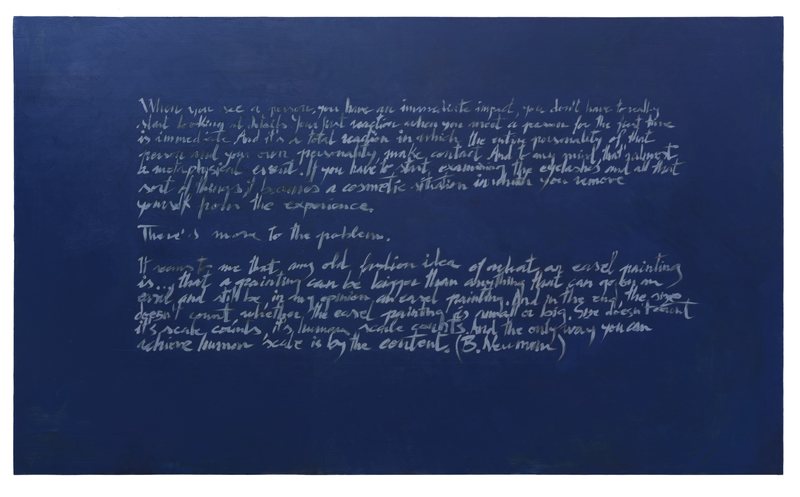 When you see a person, you have an immediate impact, you don't have to really
start looking at details. Your first reaction when you meet a person for the first time
is immediate. And it's a total reaction in which the entire personality of that
person and your own personality make contact. And to my mind that's almost
a metaphysical event. If you have to start examining the eyelashes and all that
sort of things it becomes a cosmetic situation in which you remove
yourself from the experience.
There's more to the problem.
It seems to me that any old fashion idea of what an easel painting
is... that a painting can be larger than anything that can go on
and still be, in my opinion an easel painting. And in the end, the size
doesn't count, whether the easel painting is small or big. Size doesn't count
it's scale counts, it's human scale counts. And the only way you can
achieve human scale is by the content. (B. Newman)